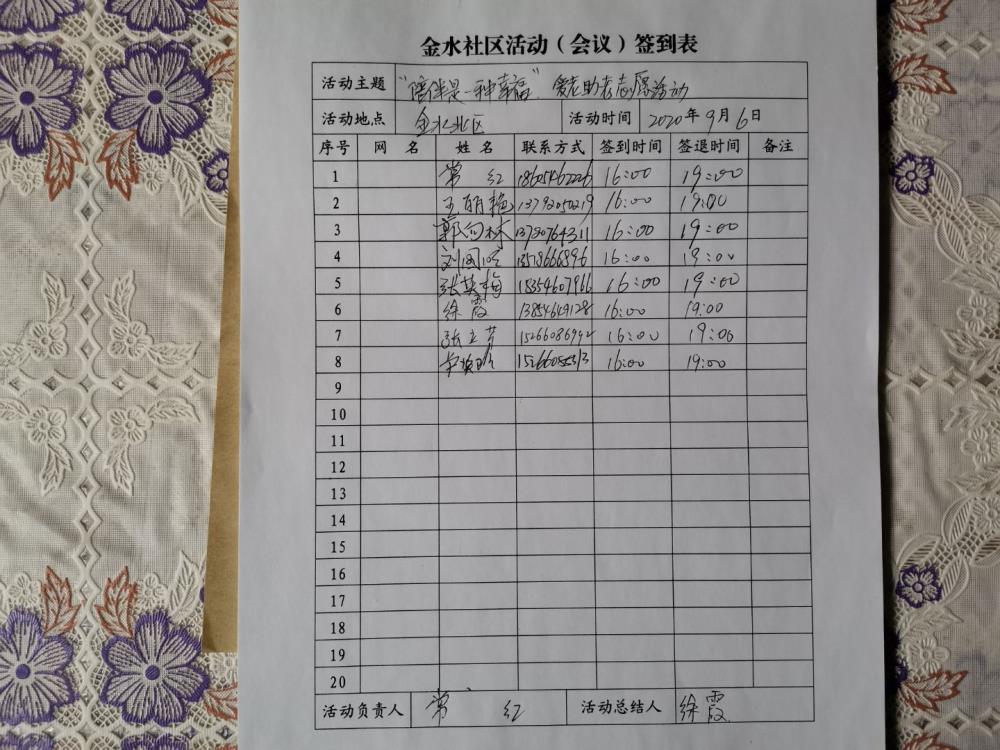 金水社区活动（会议）签到表
活动主题 “陪伴是一种幸福” 爱老助老志愿活动
活动地点 金水社区 活动时间 2020年9月6日
序号 网 名 姓 名 联系方式 签到时间 签退时间 备注
1 常 红 16:00 19:00
2 王明艳 13792050219 16:00 19:00
3 郭向林 13780764311 16:00 19:00
4 16:00 19:00
5 张英梅 15354607966 16:00 19:00
6 徐霞 13854649128 16:00 19:00
7 张立芳 15266086942 16:00 19:00
8 16:00 19:00
9
10
11
12
13
14
15
16
17
18
19
20
活动负责人 常 红 活动总结人 徐霞